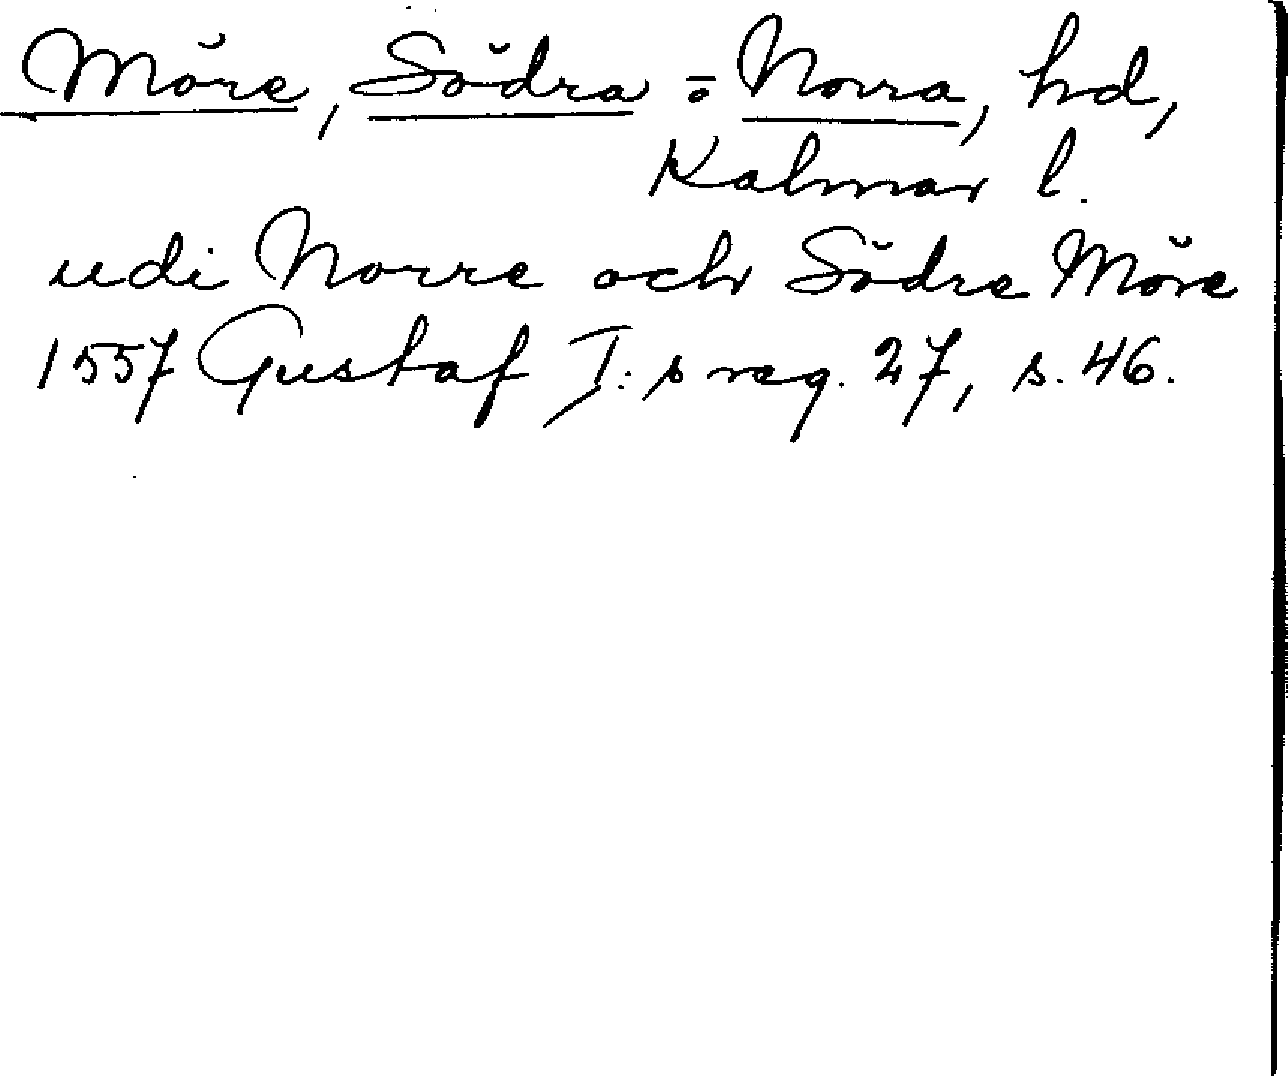 Möre, Södra o Norra, hd,
Kalmar l.
udi Norre och Södre Möre
1557 Gustaf I:s reg. 27, s. 46.